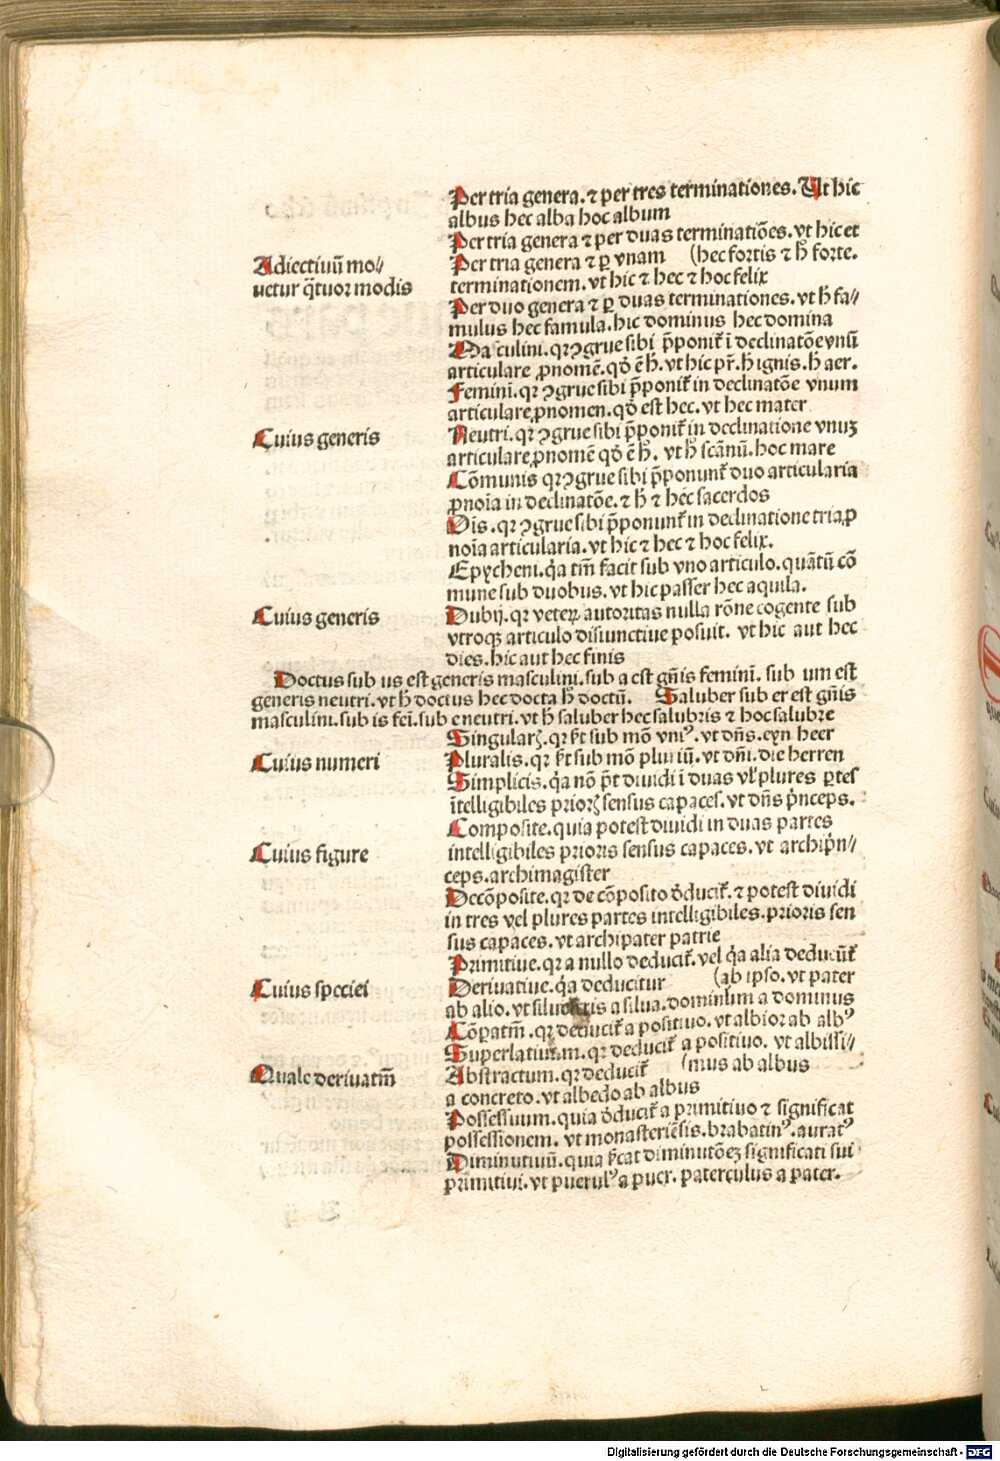 Per tria genera. ⁊ per tres terminationes. Ut hic
albus hec alba hoc album
Per tria genera ⁊ per duas terminatiões. vt hic et
Adiectiuũ mo//
uetur q̃tuor modis
Per tria genera ⁊ ꝑ vnam (hec fortis ⁊ h̄ forte.
terminationem. vt hic ⁊ hec ⁊ hoc felix
Per duo genera ⁊ ꝑ duas terminationes. vt h̄ fa//
mulus hec famula. hic dominus hec domina
Masculini. qr ꝯgrue sibi p̃ponit̃ ĩ declinatõe vnũ
articulare ꝓnomẽ. qđ ẽ h̄. vt hic pr̃. h̄ ignis. h̄ aer.
Feminĩ. qr ꝯgrue sibi p̃ponit̃ in declinatõe vnum
articulare ꝓnomen. qđ est hec. vt hec mater
Cuius generis
Neutri. qr ꝯgrue sibi p̃ponit̃ in declinatione vnuꝫ
articulare ꝓnomẽ qđ ẽ h̄. vt h̄ scãnũ. hoc mare
Cõmunis qr ꝯgrue sibi p̃ponunt̃ duo articularia
ꝓnoĩa in declinatõe. ⁊ h̄ ⁊ hec sacerdos
Oĩs. qr ꝯgrue sibi p̃ponunt̃ in declinatione tria ꝓ
noĩa articularia. vt hic ⁊ hec ⁊ hoc felix.
Epycheni. q̃a tm̃ facit sub vno articulo. quãtũ cõ
mune sub duobus. vt hic passer hec aquila.
Cuius generis
Dubij. qr veteꝝ autoritas nulla rõne cogente sub
vtroqꝫ articulo disiunctiue posuit. vt hic aut hec
dies. hic aut hec finis
Doctus sub us est generis masculini. sub a est gñis feminĩ. sub um est
generis neutri. vt h̄ doctus hec docta h̄ doctũ. Saluber sub er est gñis
masculini. sub is fei̅. sub e neutri. vt h̄ saluber hec salubris ⁊ hoc salubre
Singularꝭ. qr fit̃ sub mõ vniꝰ. vt dñs. eyn heer
Cuius numeri
Pluralis. qr fit̃ sub mõ pluriũ. vt dñi. die herren
Simplicis. q̃a nõ p̃t diuidi ĩ duas vl̃ plures ꝑtes
ĩtelligibiles priorꝭ sensus capaces. vt dñs p̃nceps.
Composite. quia potest diuidi in duas partes
Cuius figure
intelligibiles prioris sensus capaces. vt archip̃n//
ceps. archimagister
Decõposite. qr de cõposito đducit̃. ⁊ potest diuidi
in tres vel plures partes intelligibiles. prioris sen
sus capaces. vt archipater patrie
Primitiue. qr a nullo deducit̃. vel q̃a alia deducũt̃
Cuius speciei
Deriuatiue. q̃a deducitur (ab ipso. vt pater
ab alio. vt siluestris a silua. dominium a dominus
Cõꝑatm̃. qr deducit̃ a positiuo. vt albior ab albꝰ
Superlatiuum. qr deducit̃ a positiuo. vt albissi//
Quale deriuatm̃
Abstractum. qr deducit̃ (mus ab albus
a concreto. vt albedo ab albus
Possessiuum. quia đducit̃ a primitiuo ⁊ significat
possessionem. vt monasteriẽsis. brabatinꝰ. auratꝰ
Diminutiuũ. quia fi̅cat diminutõeꝫ significati sui
primitiui. vt puerulꝰ a puer. paterculus a pater.
Digitalisierung gefördert durch die Deutsche Forschungsgemeinschaft - DFG